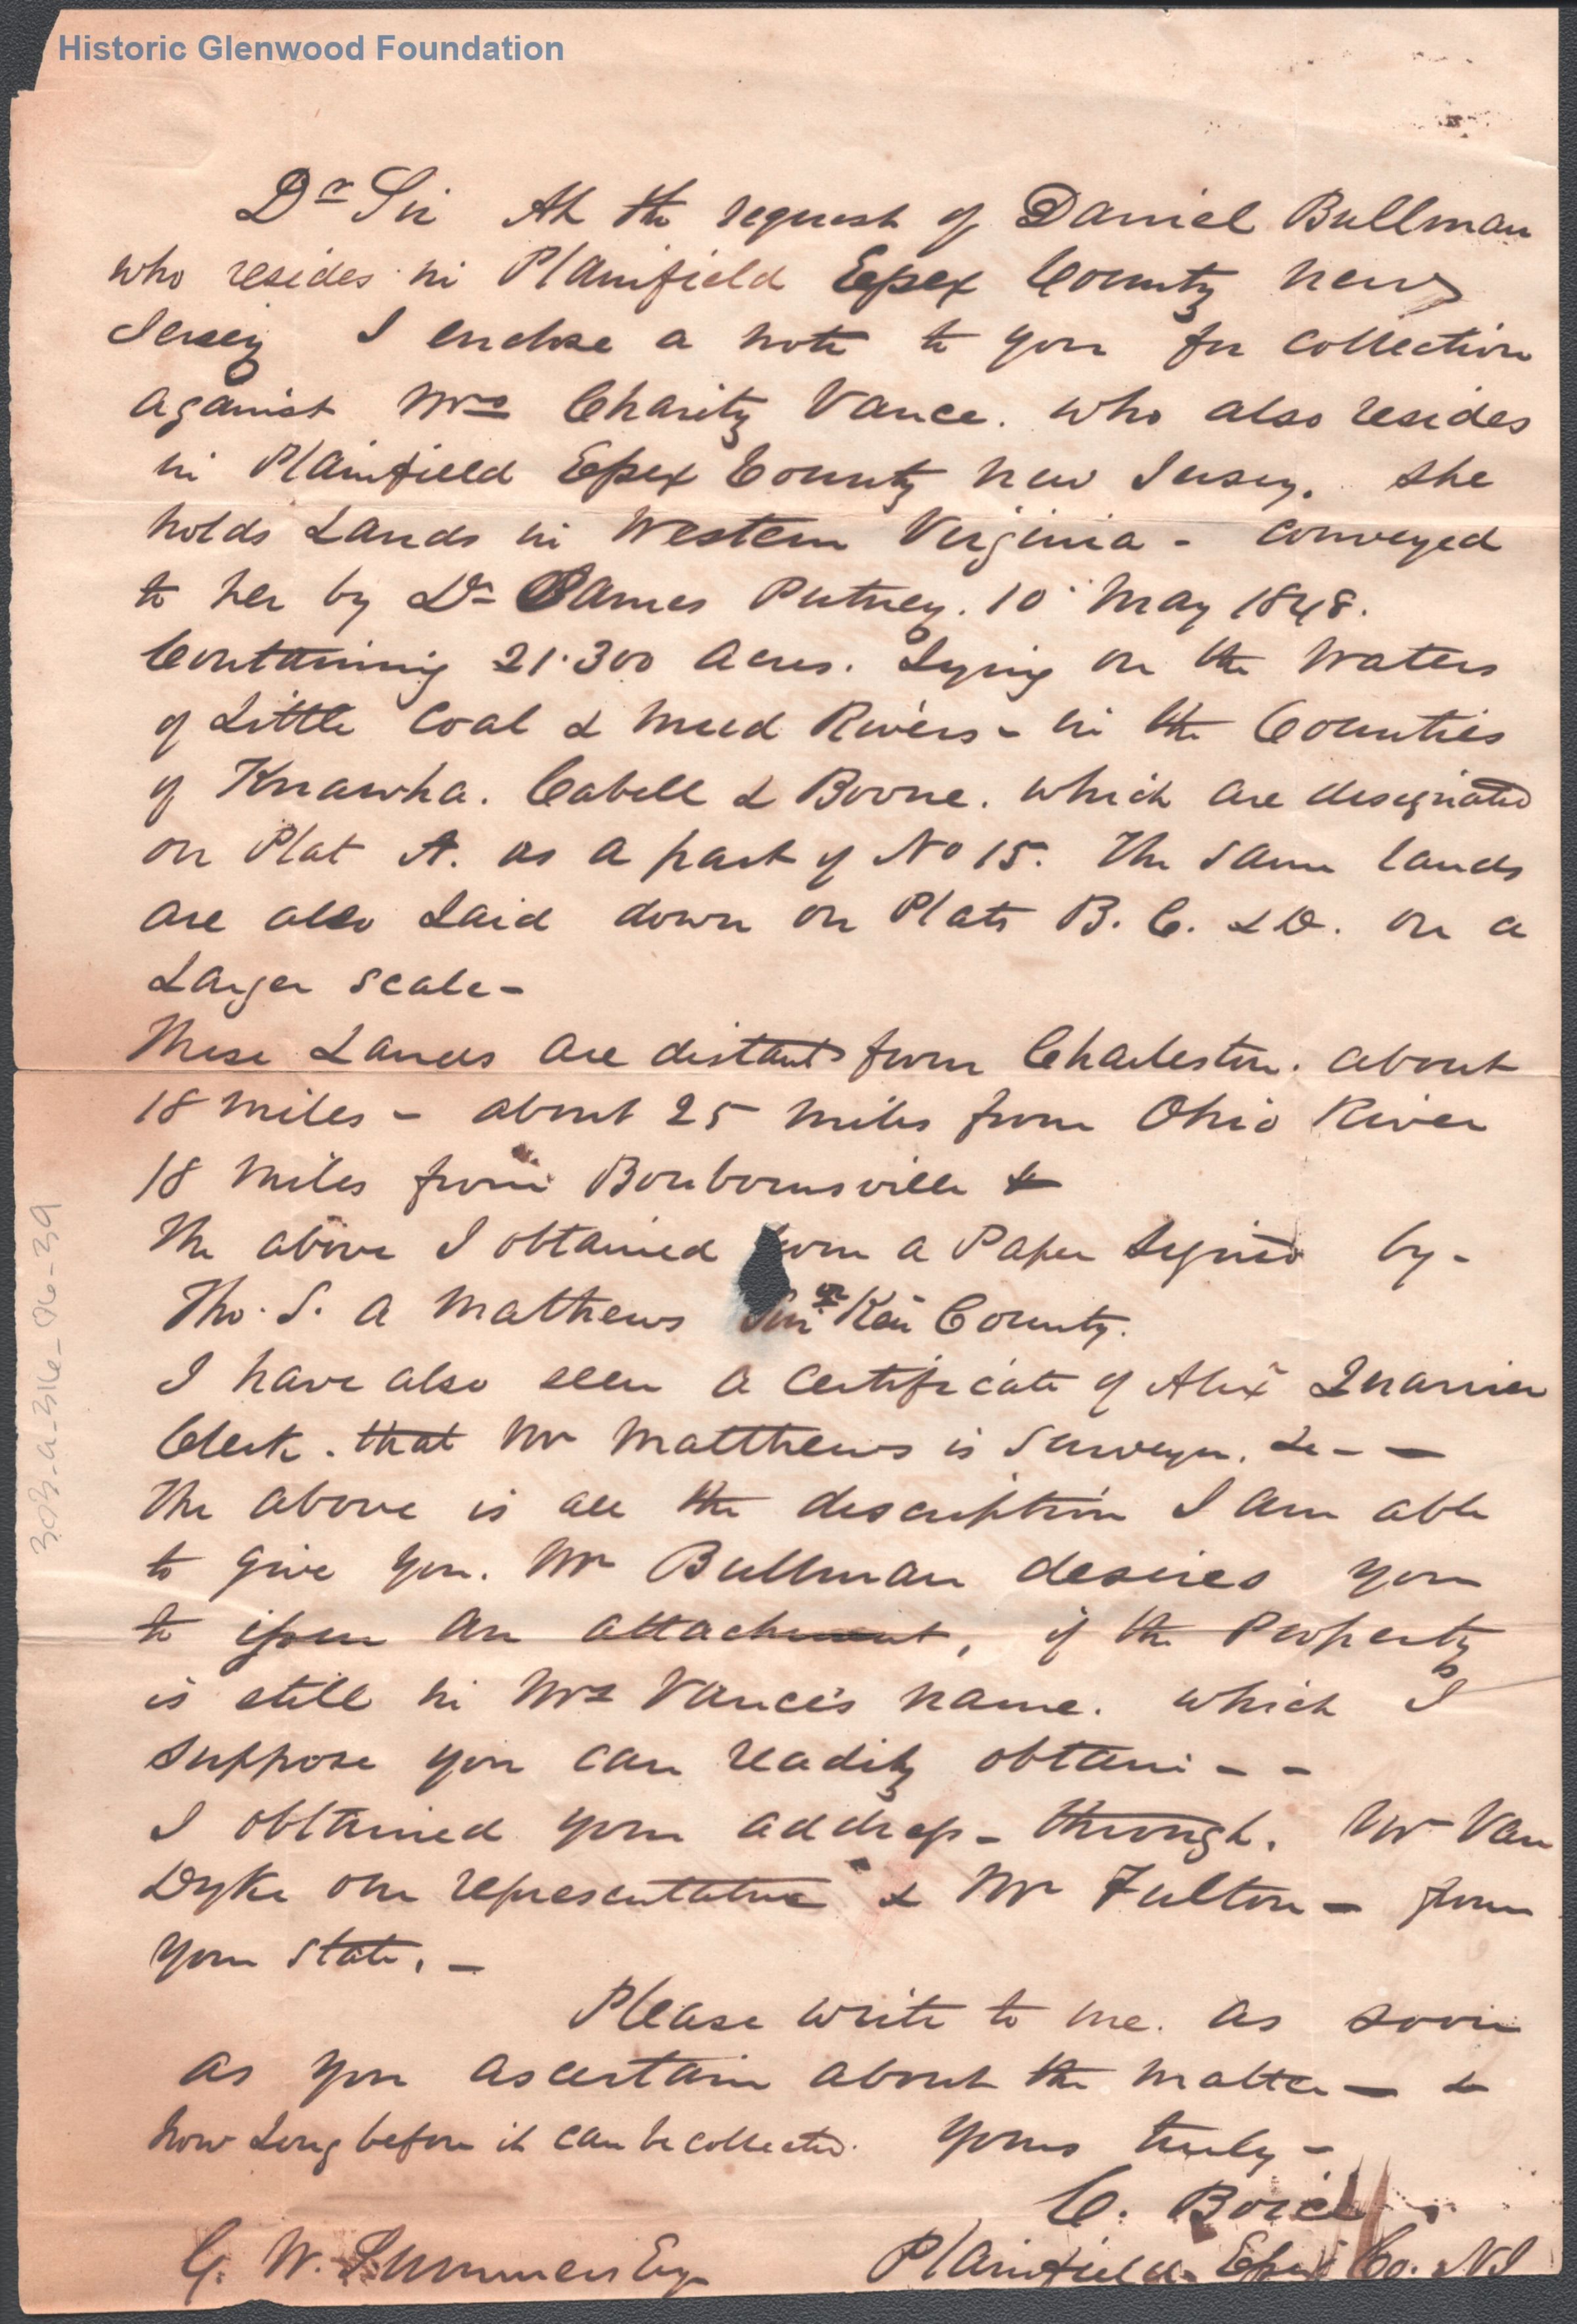 Historic Glenwood Foundation
Dr Sir At the request of Daniel Bullman
who resides in Plainfield Essex County New
Jersey I enclose a note to you for collection
against Mrs Charity Vance. who also resides
in Plainfield Essex County New Jersey. she
holds Lands in Western Virginia - conveyed
to her by Dr James Putney. 10 May 1848.
Containing 21.300 Acres. Lying on the Waters
of Little Coal & Mud Rivers - in the Counties
of Knawha. Cabell & Boone. which are designated
on Plat A. as a part of No 15. The same lands
are also Laid down on Plats B. C. & D. on a
Larger scale -
These Lands are distant from Charleston. about
18 miles - about 25 miles from Ohio River
18 miles from Bourbournsville &
The above I obtained from a Paper signed by -
Tho. S. A Mathews Surr Kan County.
I have also seen a certificate of Alexr Quarrier
Clerk. that Mr Matthews is Surveyor. &c - -
The above is all the description I am able
to give you. Mr Bullman desires you
to issue an attachment, if the Property
is still in Mrs Vance's name. which I
suppose you can readily obtain - -
I obtained your address - through. Mr Van
Dyke our representative & Mr Fulton - from
your state. -
Please write to me. as soon
as you ascertain about the matter - &
how Long before it can be collected. Yours truly -
C. Boice
G. W. Summers Esqr
Plainfield. Essex Co. NJ
303-a-316-06-39